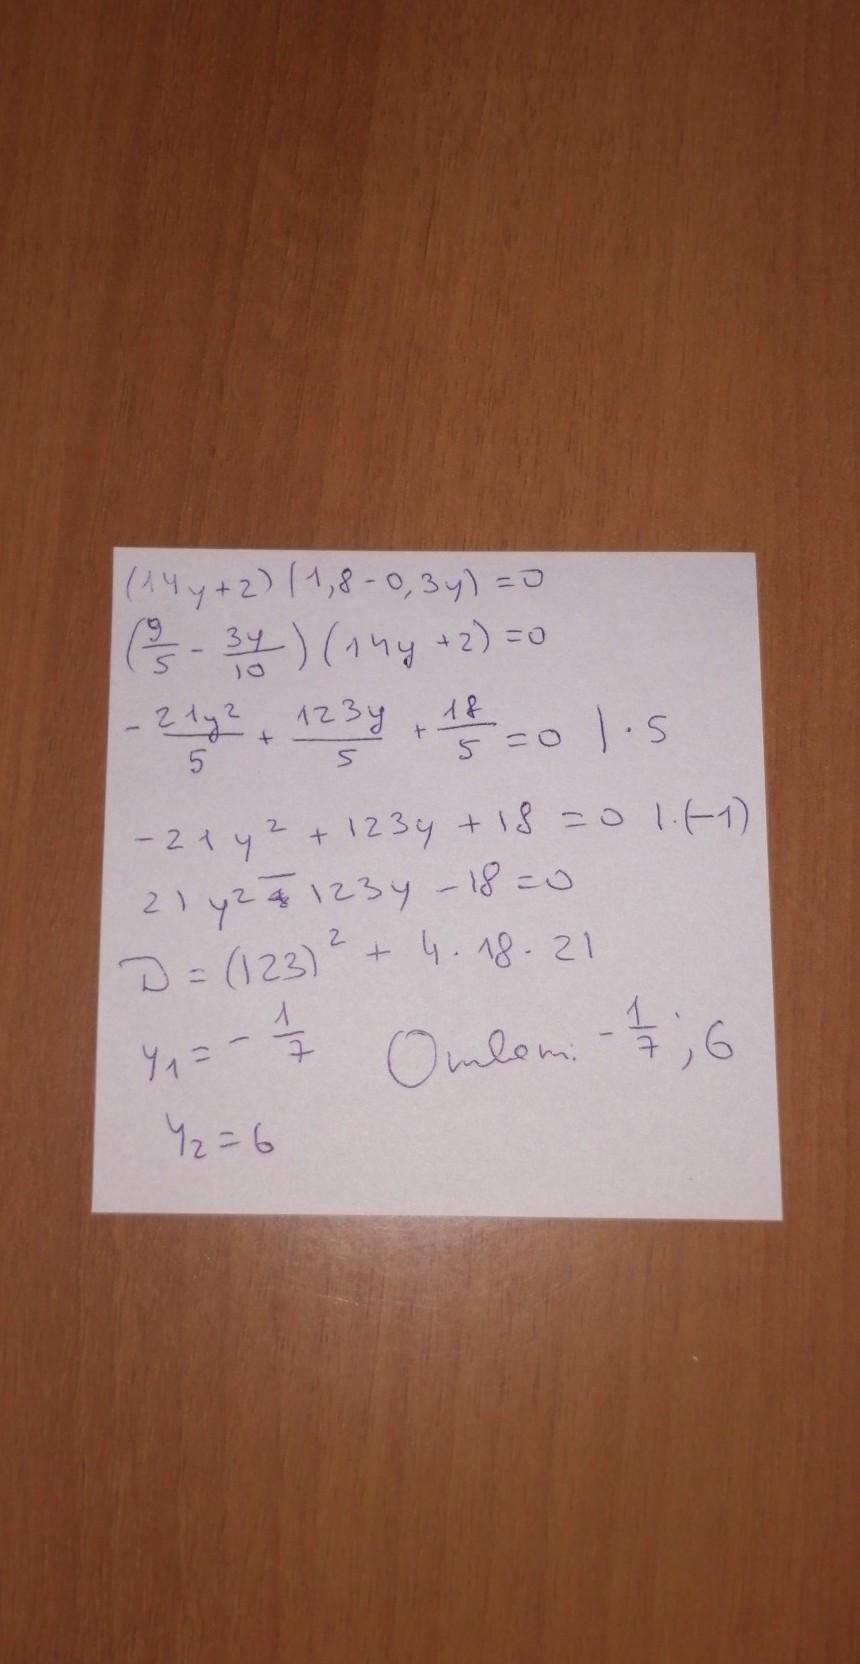 (14y+2)(1,8-0,3y)=0
(9/5 - 3y/10)(14y+2)=0
-21y²/5 + 123y/5 + 18/5 = 0 | · 5
-21y² + 123y + 18 = 0 | · (-1)
21y² - 123y - 18 = 0
D = (123)² + 4 · 18 · 21
y₁ = - 1/7
Ответ: - 1/7 ; 6
y₂ = 6